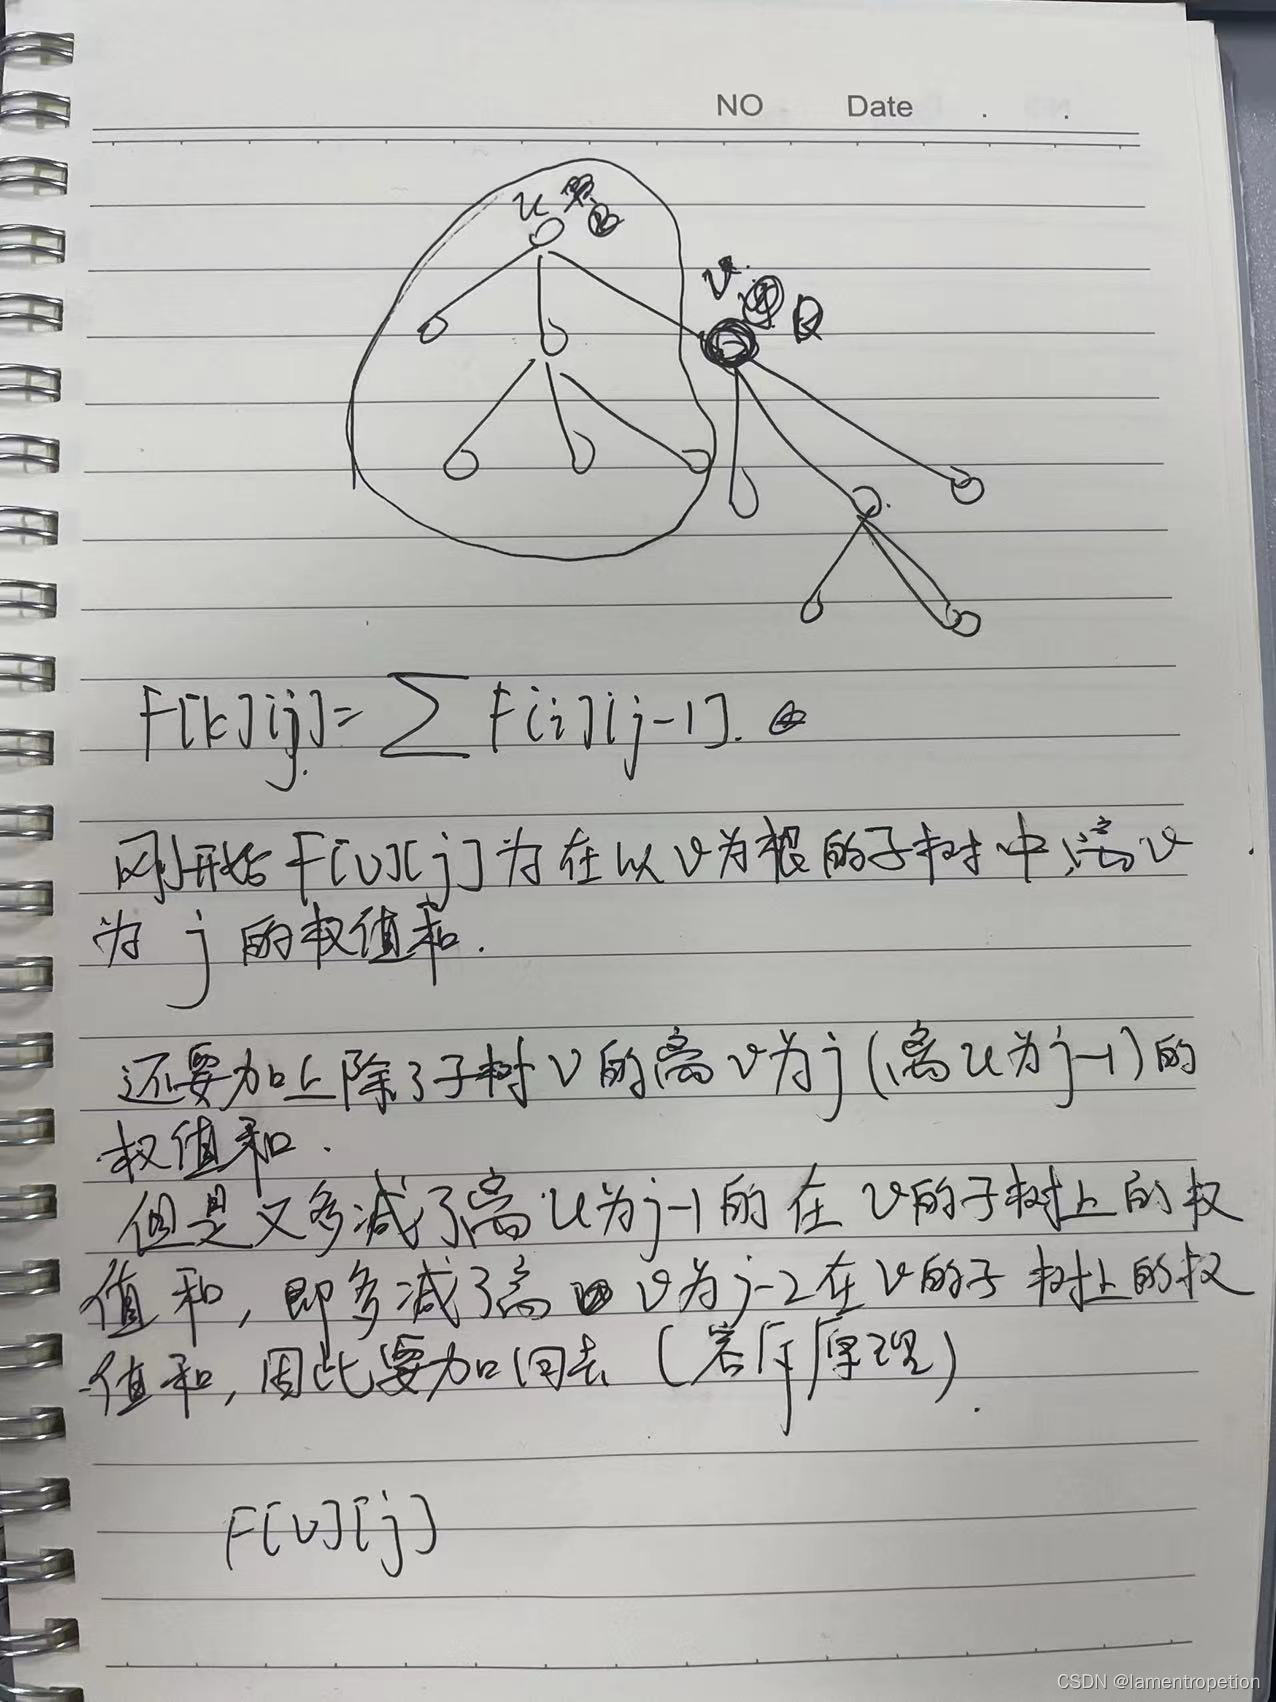 NO Date . .
u
v
F[k][j]= ∑ F[i][j-1].
刚开始 F[v][j]为在以v为根的子树中,离v
为 j 的权值和.
还要加上除了子树v的离v为j(离u为j-1)的
权值和.
但是又多减了离u为j-1的在v的子树上的权
值和,即多减了离v为j-2在v的子树上的权
值和,因此要加回去(容斥原理).
F[v][j]
CSDN @lamentropetion